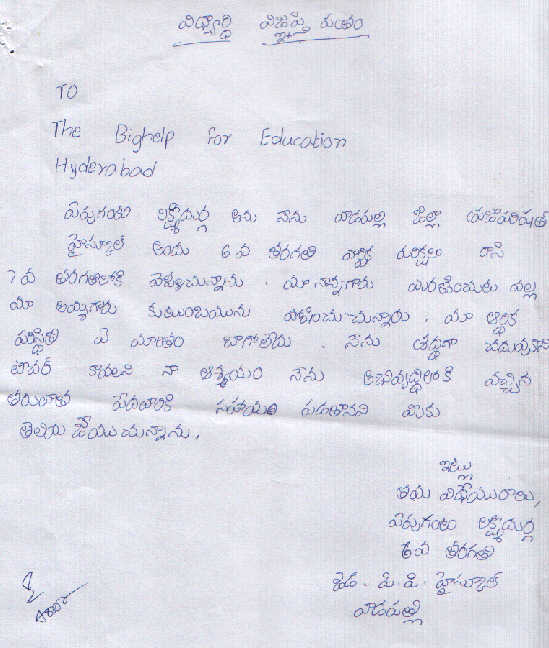 విద్యార్థి విజ్ఞప్తి పత్రం
TO
The Bighelp for Education
Hyderabad
పెద్దగంటు లక్ష్మీదుర్గ అను నేను వాడపల్లి జిల్లా ప్రజాపరిషత్
హైస్కూల్ నందు 6 వ తరగతి వార్షిక పరీక్షలు రాసి
7 వ తరగతిలోకి వెళ్ళుచున్నాను. మా నాన్నగారు మరణించుట వల్ల
మా అమ్మగారు కుటుంబమును పోషించుచున్నారు. మా ఆర్థిక
పరిస్థితి ఏ మాత్రం బాగోలేదు. నేను శ్రద్ధగా చదువుకొని
టీచర్ కావాలని నా ఆశయం నేను అభివృద్ధిలోకి వచ్చిన
తరువాత పేదవారికి సహాయం పడతానని మీకు
తెలియ జేయు చున్నాను.
ఇట్లు
తమ విధేయురాలు,
పెద్దగంటు లక్ష్మీదుర్గ
6 వ తరగతి
జెడ్. పి. పి. హైస్కూల్
వాడపల్లి